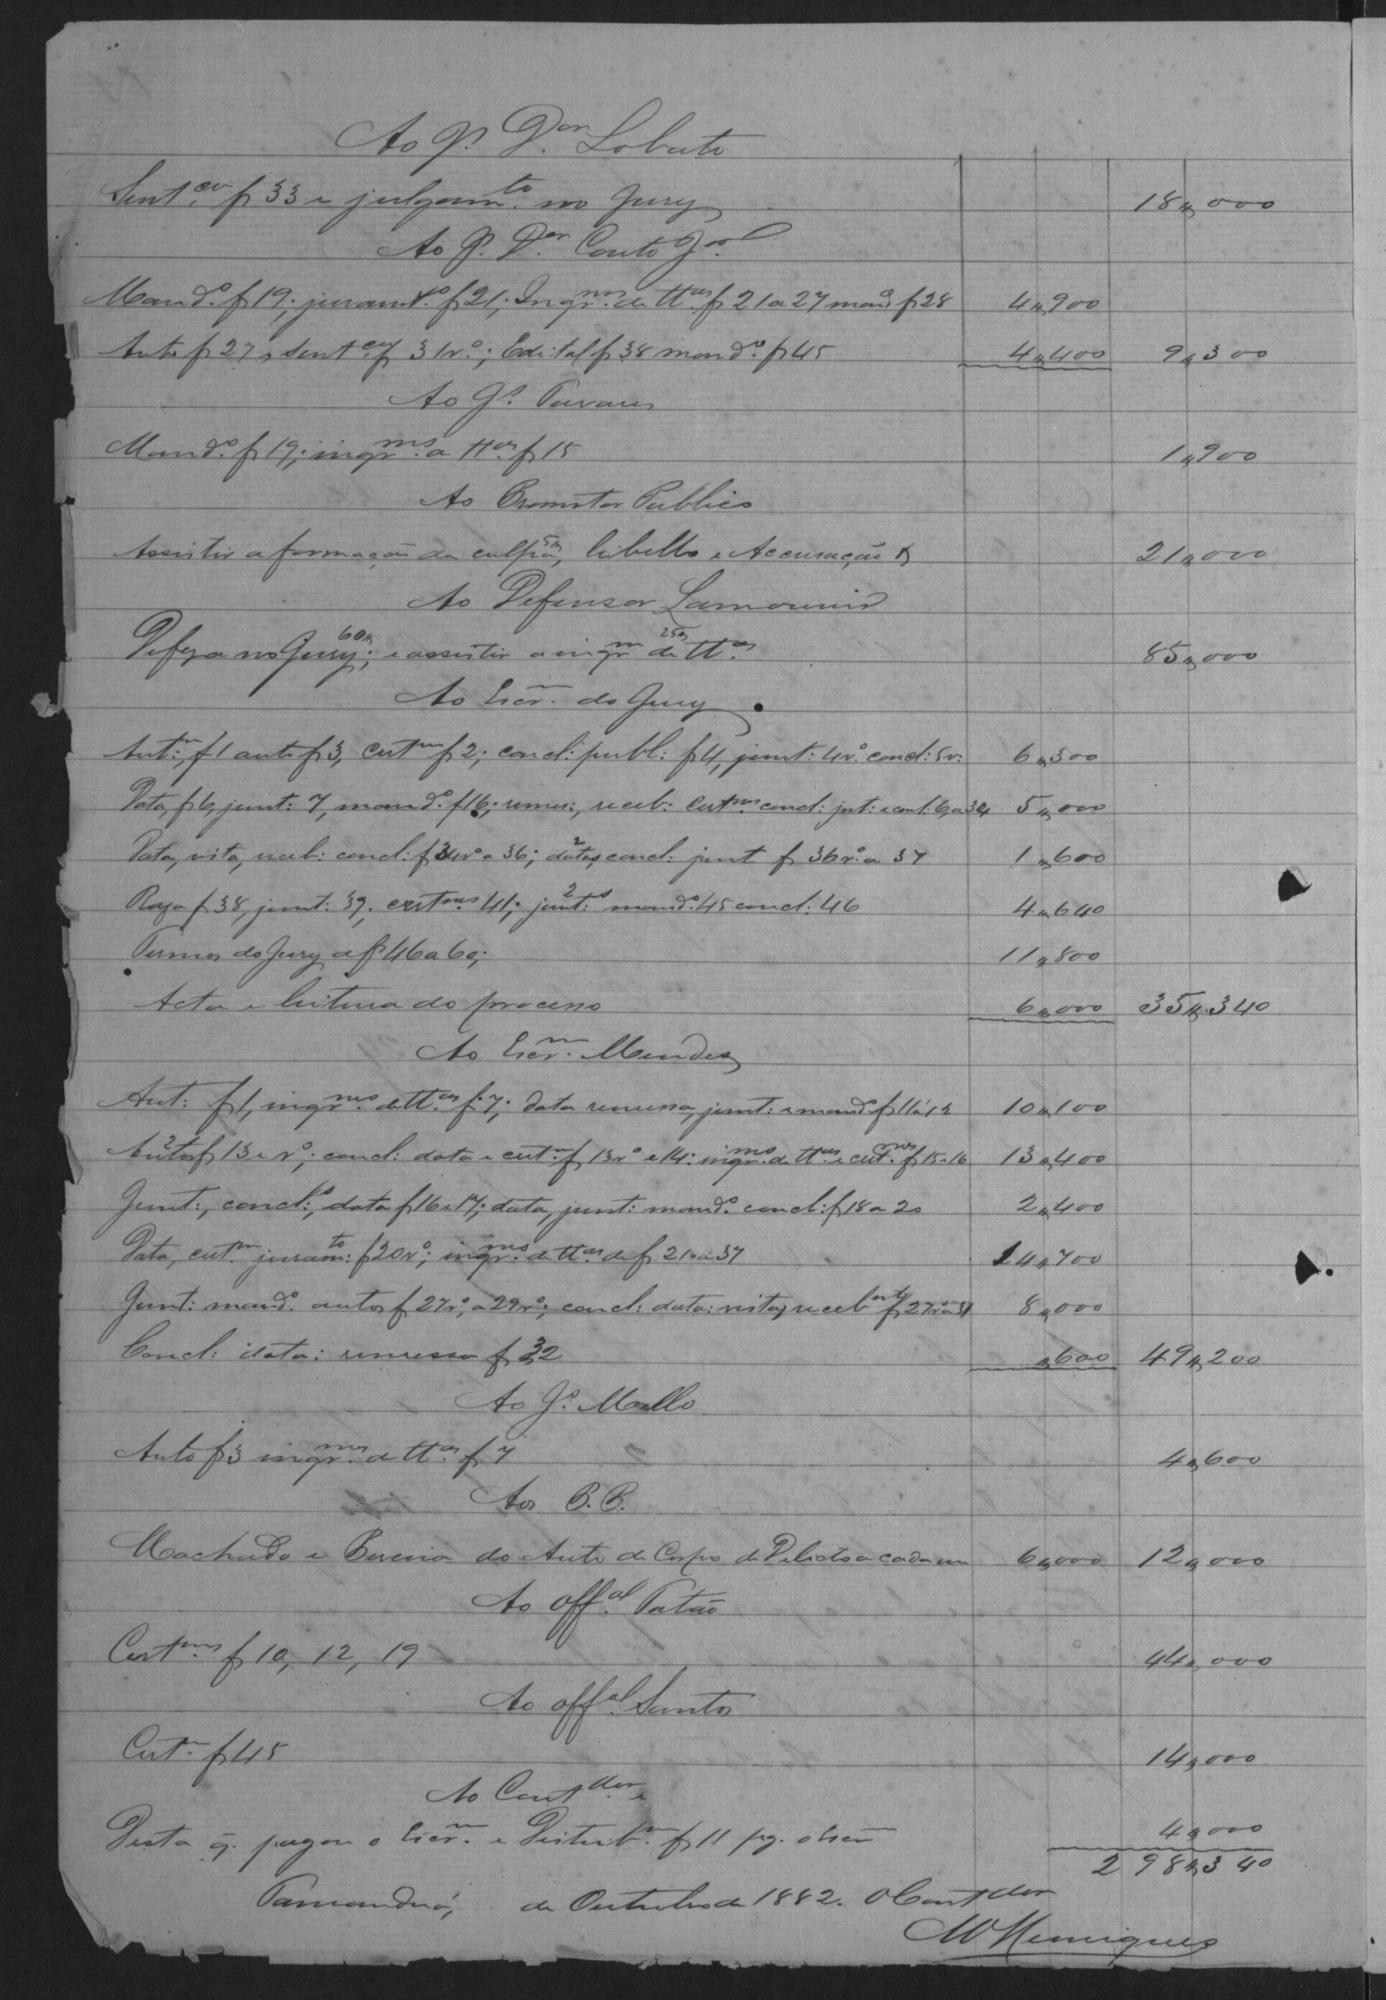 Ao J. Dor. Lobato
Sent.ca f 33 e julgam.to no Jury 18$000
Ao J. Dor Couto Jor.
Mand.o f 19; juram.to f 21; Inqr.ms de ttas. f 21 a 27 mando f 28 4$900
Auto f 27, sent.ca f 31 vo.; Edital f 38 mand.o f 45 4$400 9$300
Ao J.s Tavares
Mand.o f 19; inqr.ms a ttas. f 15 1$900
Ao Promotor Publico
Assistir a formação da culpa 5$, libello e Accusação 21$000
Ao Defensor Lamounier
Defeza no Jury 60$; e assistir a inqr.m de ttas. 25$ 85$000
Ao Escr.m do Jury
Aut: f 1 auto f 3, cert.m f 2; concl: publ: f 4, junt: 4 vo. concl: 5 v: 6$300
Data, f 6, junt: 7, mand.o f 16; remes:, receb: Cert.ms concl: jut: e concl: 6, a 34 5$000
Data, vista, receb: concl: f 34 vo a 36; 2 datas, concl: junt f 36 vo. a 37 1$600
Raza f 38, junt: 39, cert.ms 41; 2 junt:s mand.o 45 concl: 46 4$640
Termos do Jury de f 46 a 60; 11$800
Acta e leitura do processo 6$000 35$340
Ao Escr.m Mendes
Aut: f 1, inqr.ms de ttas. f. 7; data remessa, junt: e mand.o f 11 a 12 10$100
2 Autos f 13 e vo; concl: data e cert.m f 13 vo e 14: inqr.ms de ttas e cert.ms f 15 e 16 13$400
Junt:, concl:s, data f 16 e 17; data, junt: mand.o concl: f 18 a 20 2$400
Data, cert.m juram:to f 20 vo; inqr.ms de ttas de f 21 a 37 14$700
Junt: mand.o autos f 27 vo, a 29 vo; concl: data: vista, receb f 27 vo a 31 8$000
Concl: data: remessa f 32 $600 49$200
Ao J.s Mello
Auto f 3 inqr.ms de ttas. f 7 4$600
Aos P.P.
Machado e Pereira do Auto de Corpo de Delicto a cada um 6$000 12$000
Ao off.al Patão
Cert.ms f 10, 12, 19 44$000
Ao off.al Santos
Cert.m f 45 14$000
Ao Cont.dor
Desta q. pagou o Escr.m e Distrib.m f 11 pg. o Escm 4$000
298$340
Tamanduá, de Outubro de 1882. O Contdor
M Henriques